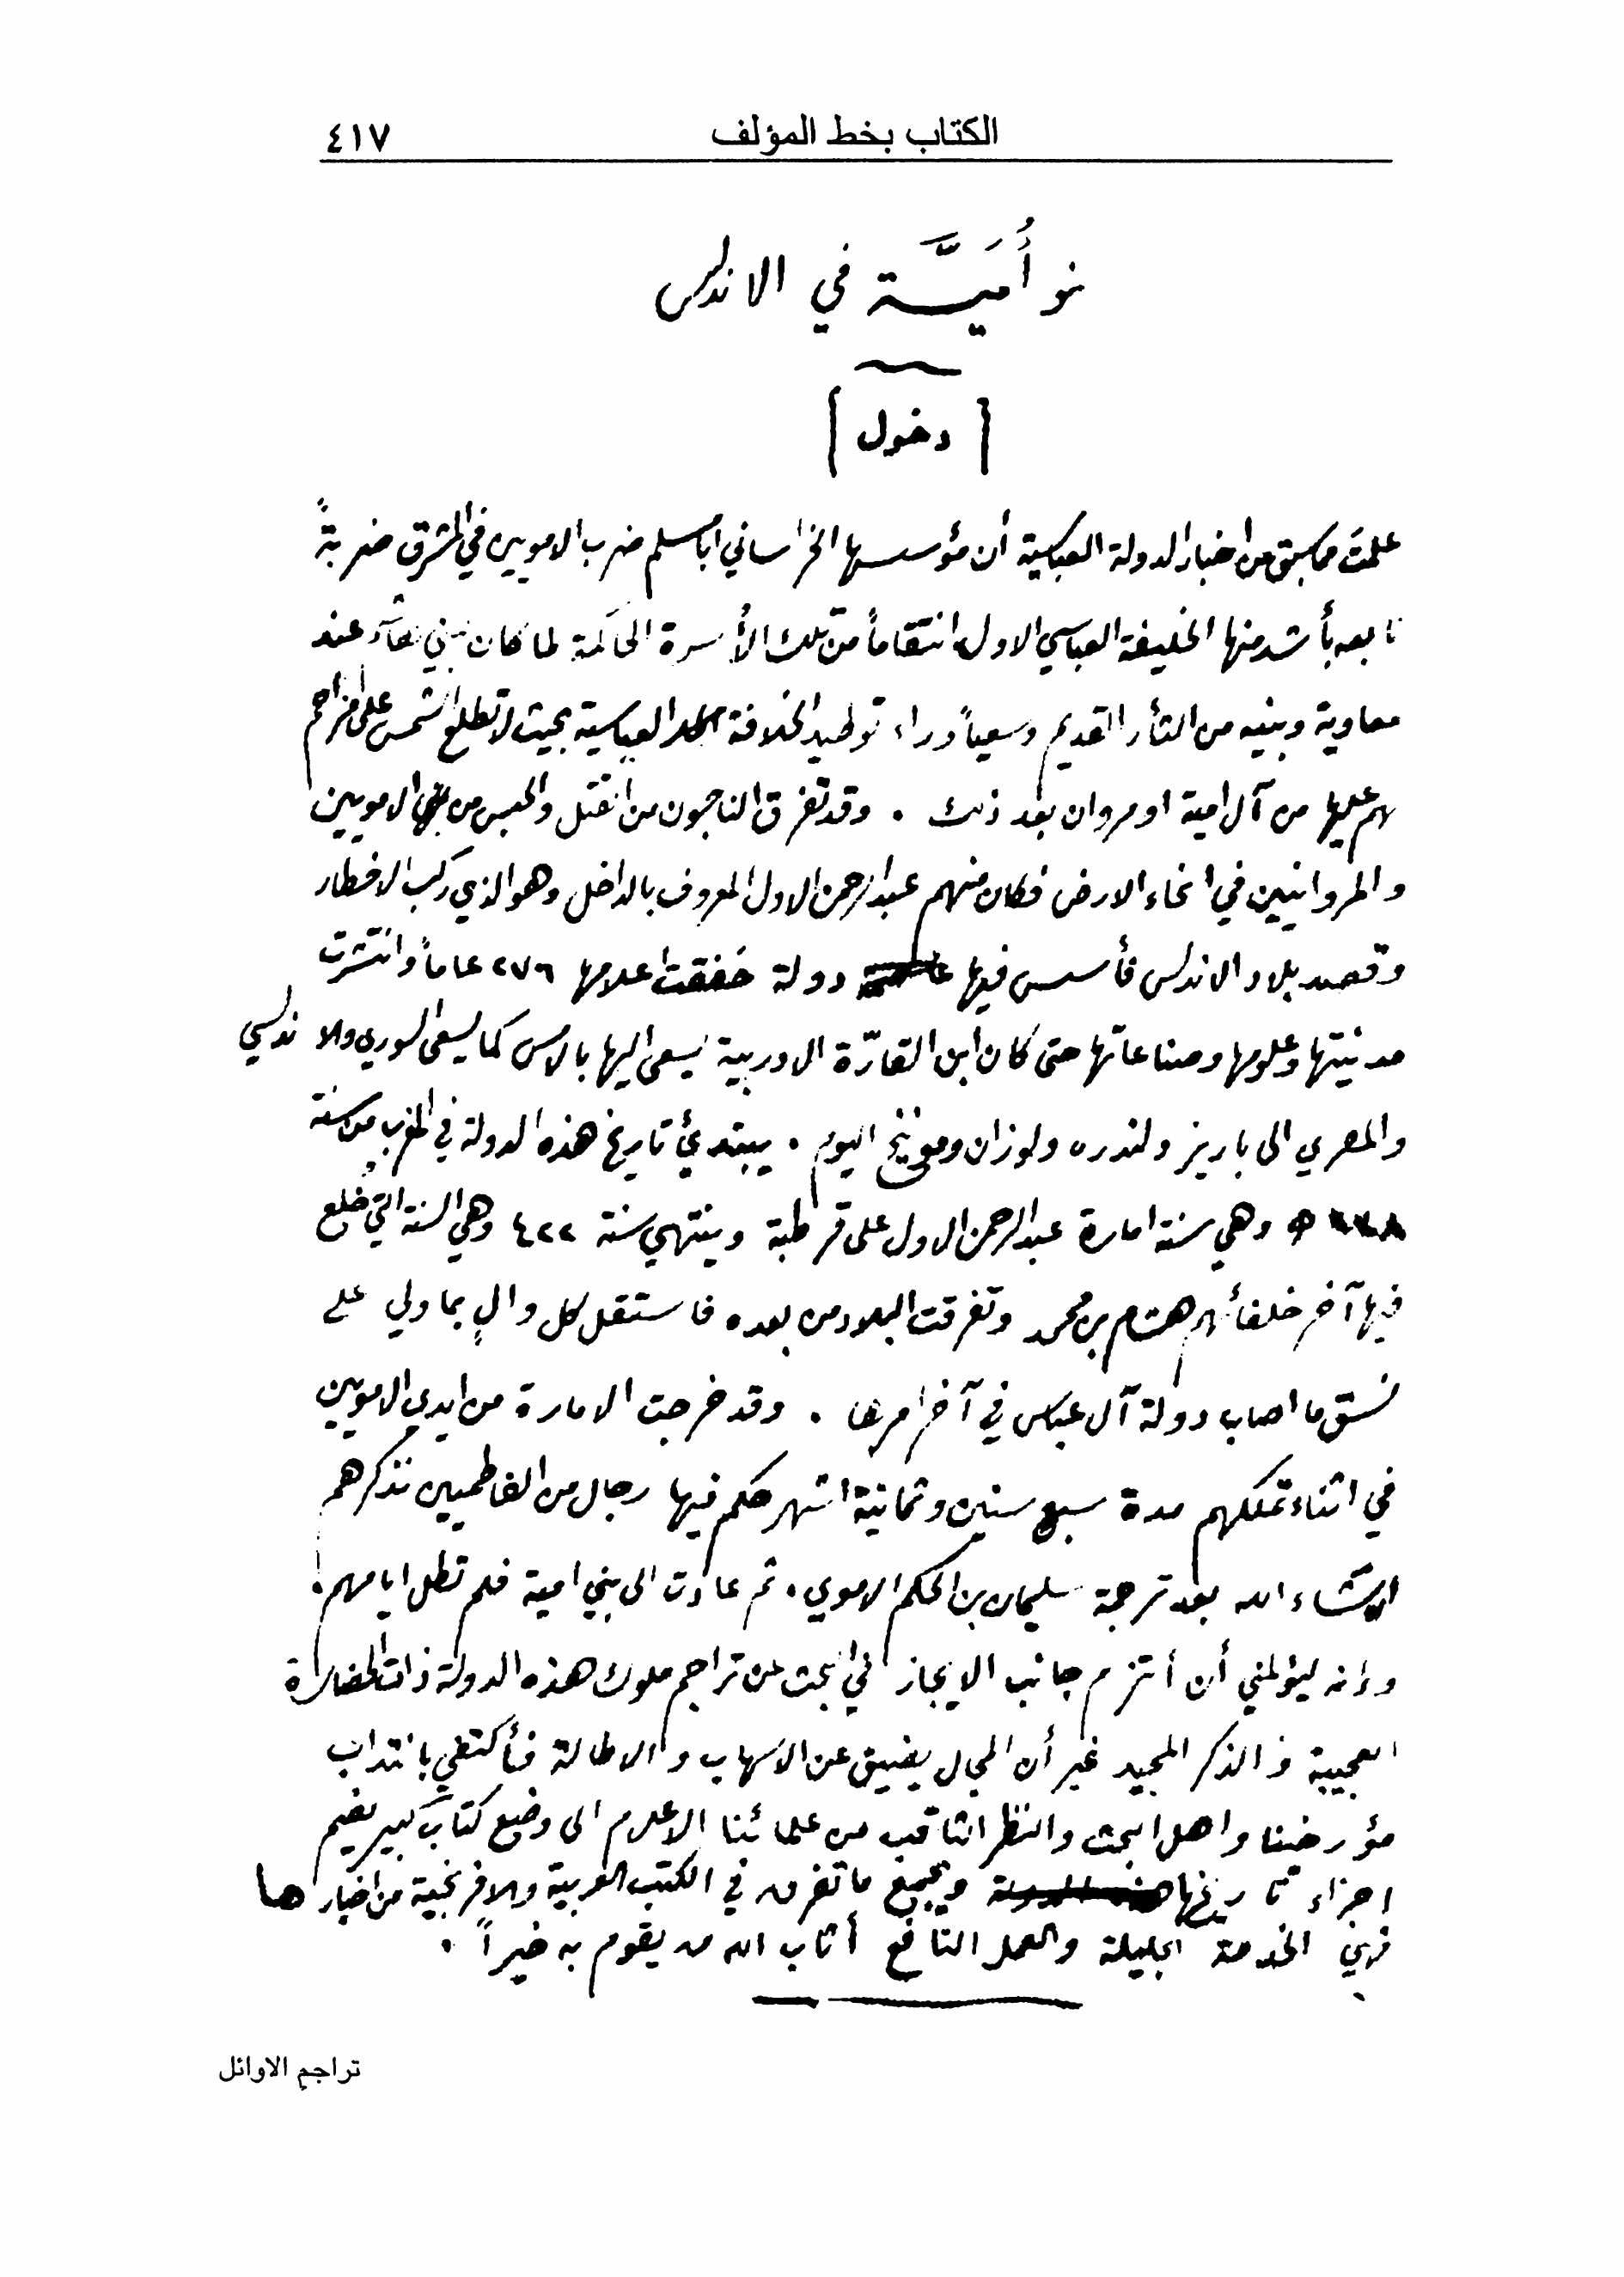 الكتاب بخط المؤلف ٤١٧
بنو أُمَيَّة في الاندلس
[ دخول ]
علمتَ مما سبق من اخبار الدولة العباسية أن مؤسسها الخراساني ابا مسلم ضرب الامويين في المشرق ضربةً
تابعه بأشد منها الخليفة العباسي الاول انتقاماً من تلك الأسرة الحاكمة لما كان لبني هاشم عند
معاوية وبنيه من الثأر القديم وسعياً وراء توطيد الخلافة العباسية بحيث لا تطلع الشمس على مزاحم
لهم عليها من آل امية او مروان بعد ذلك . وقد تفرق الناجون من القتل والحبس من الامويين
والمروانيين في انحاء الارض فكان منهم عبد الرحمن الاول المعروف بالداخل وهو الذي ركب الاخطار
وقصد بلاد الاندلس فأسس فيها دولة خفقت اعلامها ٢٧٦ عاماً وانتشرت
مدنيتها وعلومها وصناعاتها حتى كان ابن القارّة الاوربية يسعى اليها بالامس كما يسعى السوري والاندلسي
والمصري الى باريز ولندره ولوزان ومونيخ اليوم . يبتدئ تاريخ هذه الدولة في المغرب من سنة
وهي سنة امارة عبد الرحمن الاول على قرطبة وينتهي سنة ٤٢٢ وهي السنة التي خُلع
فيها آخر خلفائهم هشام بن محمد وتفرقت البلاد من بعده فاستقل كل والٍ بما ولي على
نسق ما اصاب دولة آل عباس في آخر امرها . وقد خرجت الامارة من ايدي الامويين
في اثناء تملكهم مدة سبع سنين وثمانية اشهر حكم فيها رجال من الفاطميين نذكرهم
ان شاء الله بعد ترجمة سليمان بن الحكم الاموي . ثم عادت الى بني امية فلم تطل ايامهم .
وإنه ليؤلمني أن ألتزم جانب الايجاز في البحث عن تراجم ملوك هذه الدولة ذات الحضارة
العجيبة والذكر المجيد غير أن المجال يضيق عن الاسهاب والاطالة فأكتفي بانتداب
مؤرخينا واهل البحث والنظر الثاقب من علمائنا الاعلام الى وضع كتاب كبير يضم
اجزاء تاريخها ويجمع ما تفرق في الكتب العربية والافرنجية من اخبارها
فهي الخدمة الجليلة والعمل النافع أثاب الله من يقوم به خيراً .
تراجم الاوائل